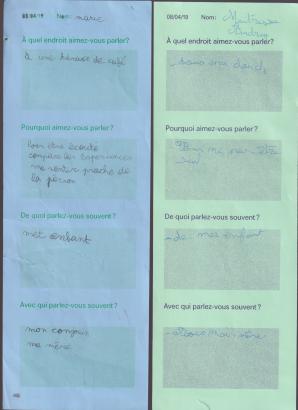 03/04/19 Nom: marie
À quel endroit aimez-vous parler?
à une terrasse de café
Pourquoi aimez-vous parler?
pour être écouté
comparer les expériences
me sentir proche de
la person
De quoi parlez-vous souvent?
met enfant
Avec qui parlez-vous souvent?
mon conjoin
ma mère
03/04/19 Nom:
À quel endroit aimez-vous parler?
- sous ma douch
Pourquoi aimez-vous parler?
De quoi parlez-vous souvent?
- de mes enfant
Avec qui parlez-vous souvent?
- avec ma mère